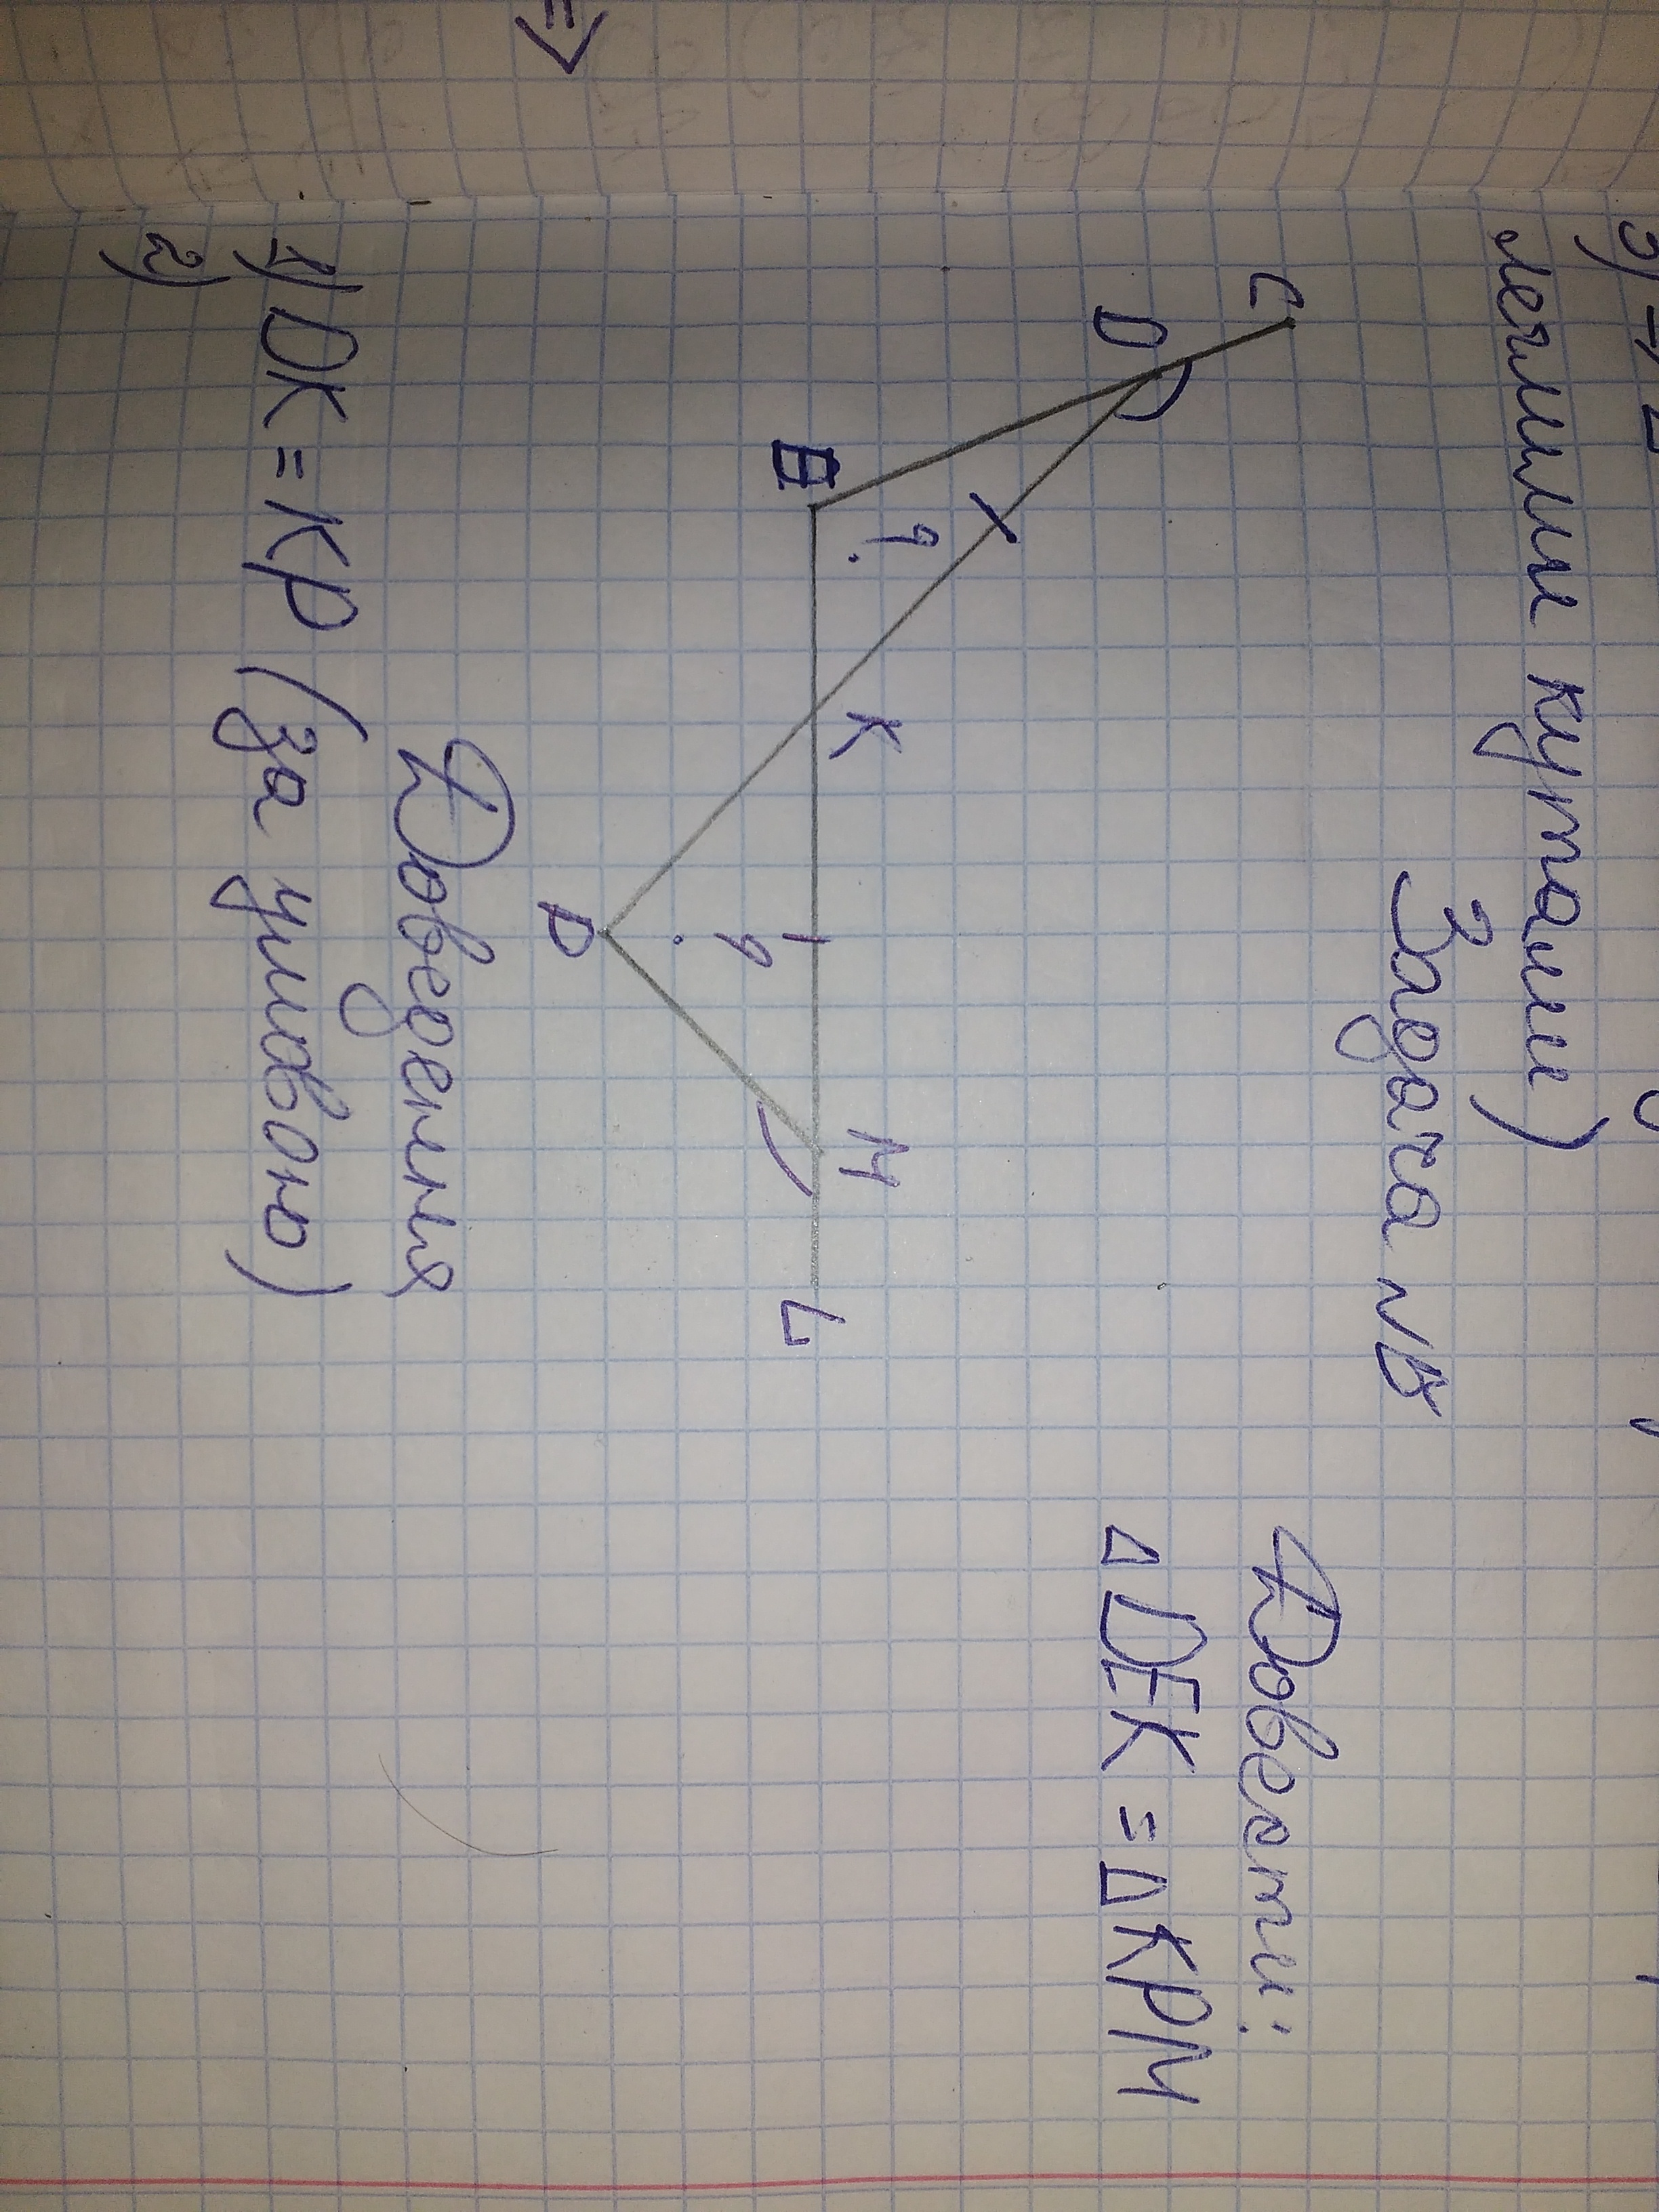 3)
легшими кутами)
Задача №5
Довести:
△DEK = △KPM
C
D
K
M
L
E
?
?
P
Доведення
1) DK = KP (за умовою)
2)
⇒